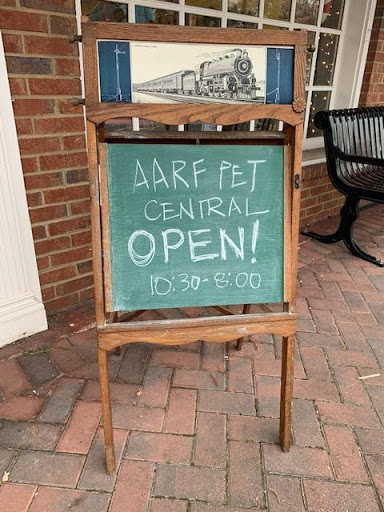 AARF PET
CENTRAL
OPEN!
10:30-8:00